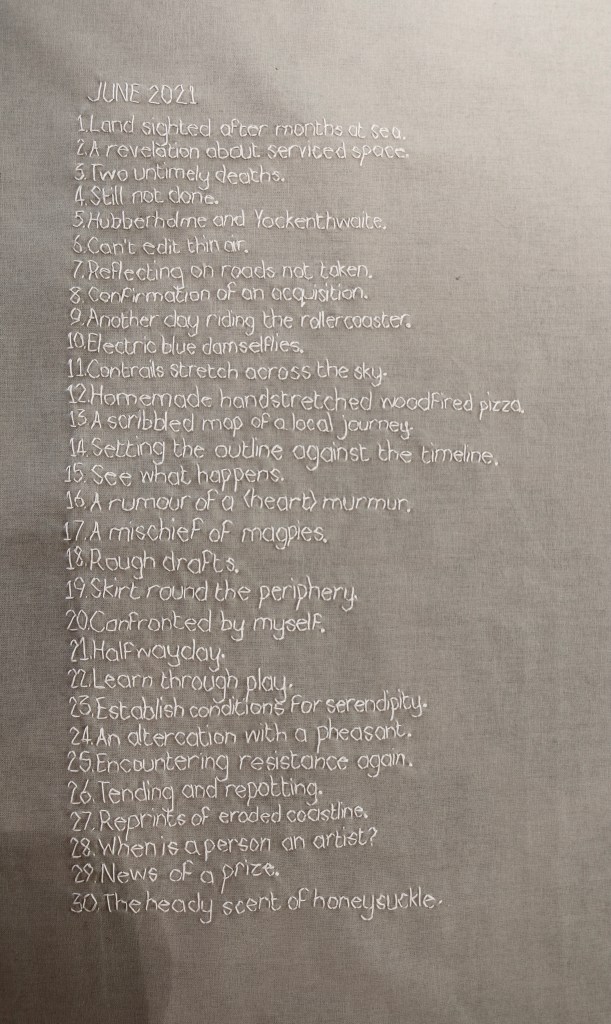 JUNE 2021
1. Land sighted after months at sea.
2. A revelation about serviced space.
3. Two untimely deaths.
4. Still not done.
5. Hubberholme and Yockenthwaite.
6. Can't edit thin air.
7. Reflecting on roads not taken.
8. Confirmation of an acquisition.
9. Another day riding the rollercoaster.
10. Electric blue damselflies.
11. Contrails stretch across the sky.
12. Homemade handstretched woodfired pizza.
13. A scribbled map of a local journey.
14. Setting the outline against the timeline.
15. See what happens.
16. A rumour of a (heart) murmur.
17. A mischief of magpies.
18. Rough drafts.
19. Skirt round the periphery.
20. Confronted by myself.
21. Halfwayday.
22. Learn through play.
23. Establish conditions for serendipity.
24. An altercation with a pheasant.
25. Encountering resistance again.
26. Tending and repotting.
27. Reprints of eroded coastline.
28. When is a person an artist?
29. News of a prize.
30. The heady scent of honeysuckle.